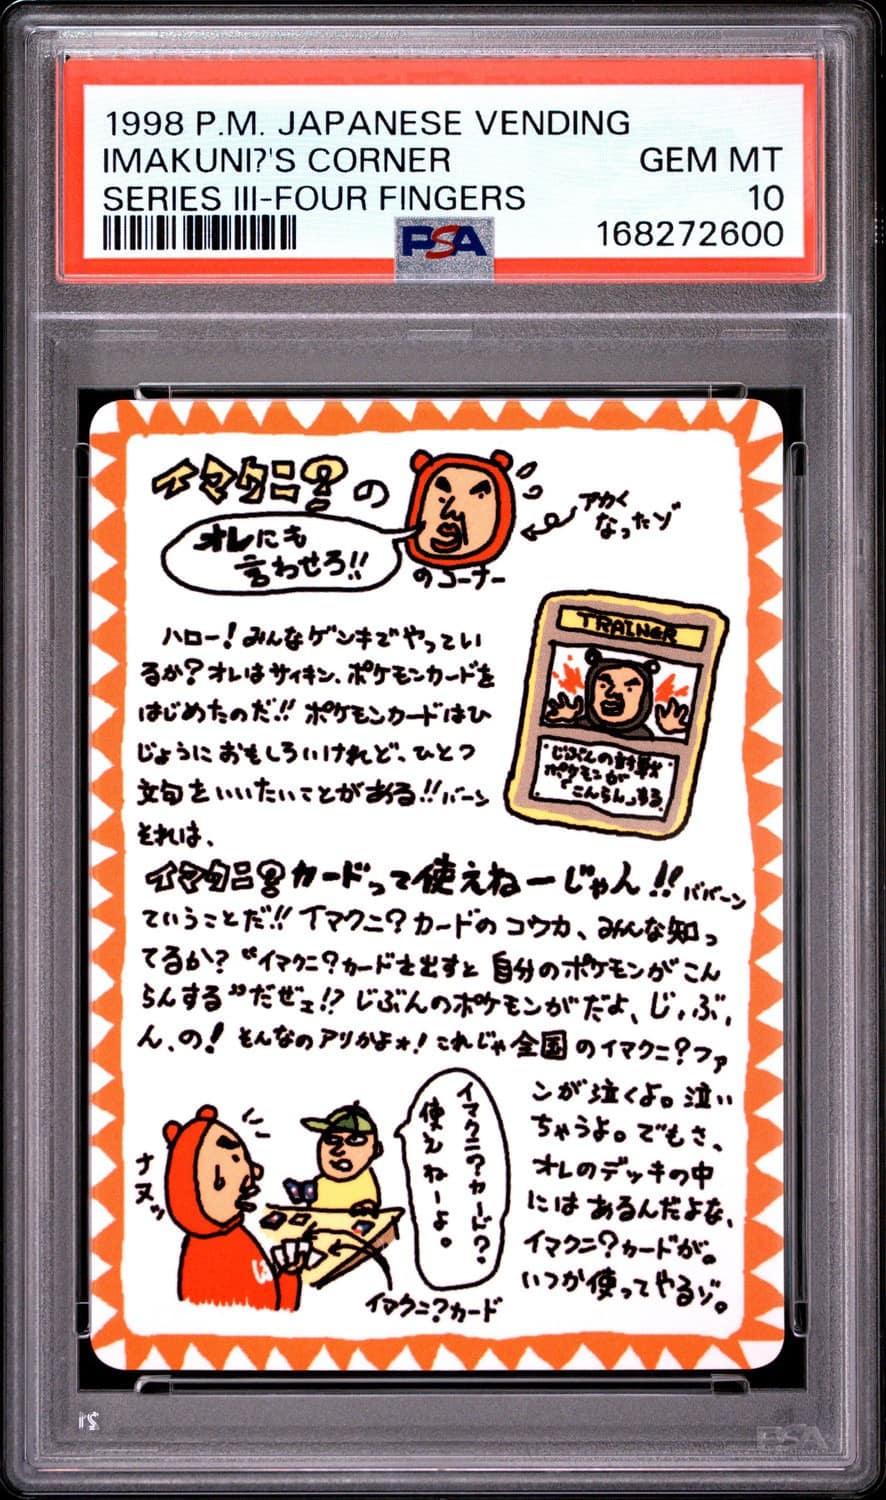 1998 P.M. JAPANESE VENDING
IMAKUNI?'S CORNER GEM MT
SERIES III-FOUR FINGERS 10
PSA 168272600
イマクニ?の
オレにも
言わせろ!!
のコーナー
アカく
なったゾ
ハロー!みんなゲンキでやってい
るか?オレはサイキン、ポケモンカードを
はじめたのだ!!ポケモンカードはひ
じょうにおもしろいけれど、ひとつ
文句をいいたいことがある!!バーン
それは、
TRAINER
じぶんの対戦
ポケモンが
「こんらん」する。
イマクニ?カードって使えねーじゃん!!ババーン
ていうことだ!!イマクニ?カードのコウカ、みんな知っ
てるか?“イマクニ?カードを出すと自分のポケモンがこん
らんする”だぜェ!?じぶんのポケモンがだよ、じ、ぶ、
ん、の!そんなのアリかよォ!これじゃ全国のイマクニ?ファ
ンが泣くよ。泣い
ちゃうよ。でもさ、
オレのデッキの中
にはあるんだよな、
イマクニ?カードが。
いつか使ってやるゾ。
ナヌッ
イマクニ?カード?
使えねーよ。
イマクニ?カード
PSA